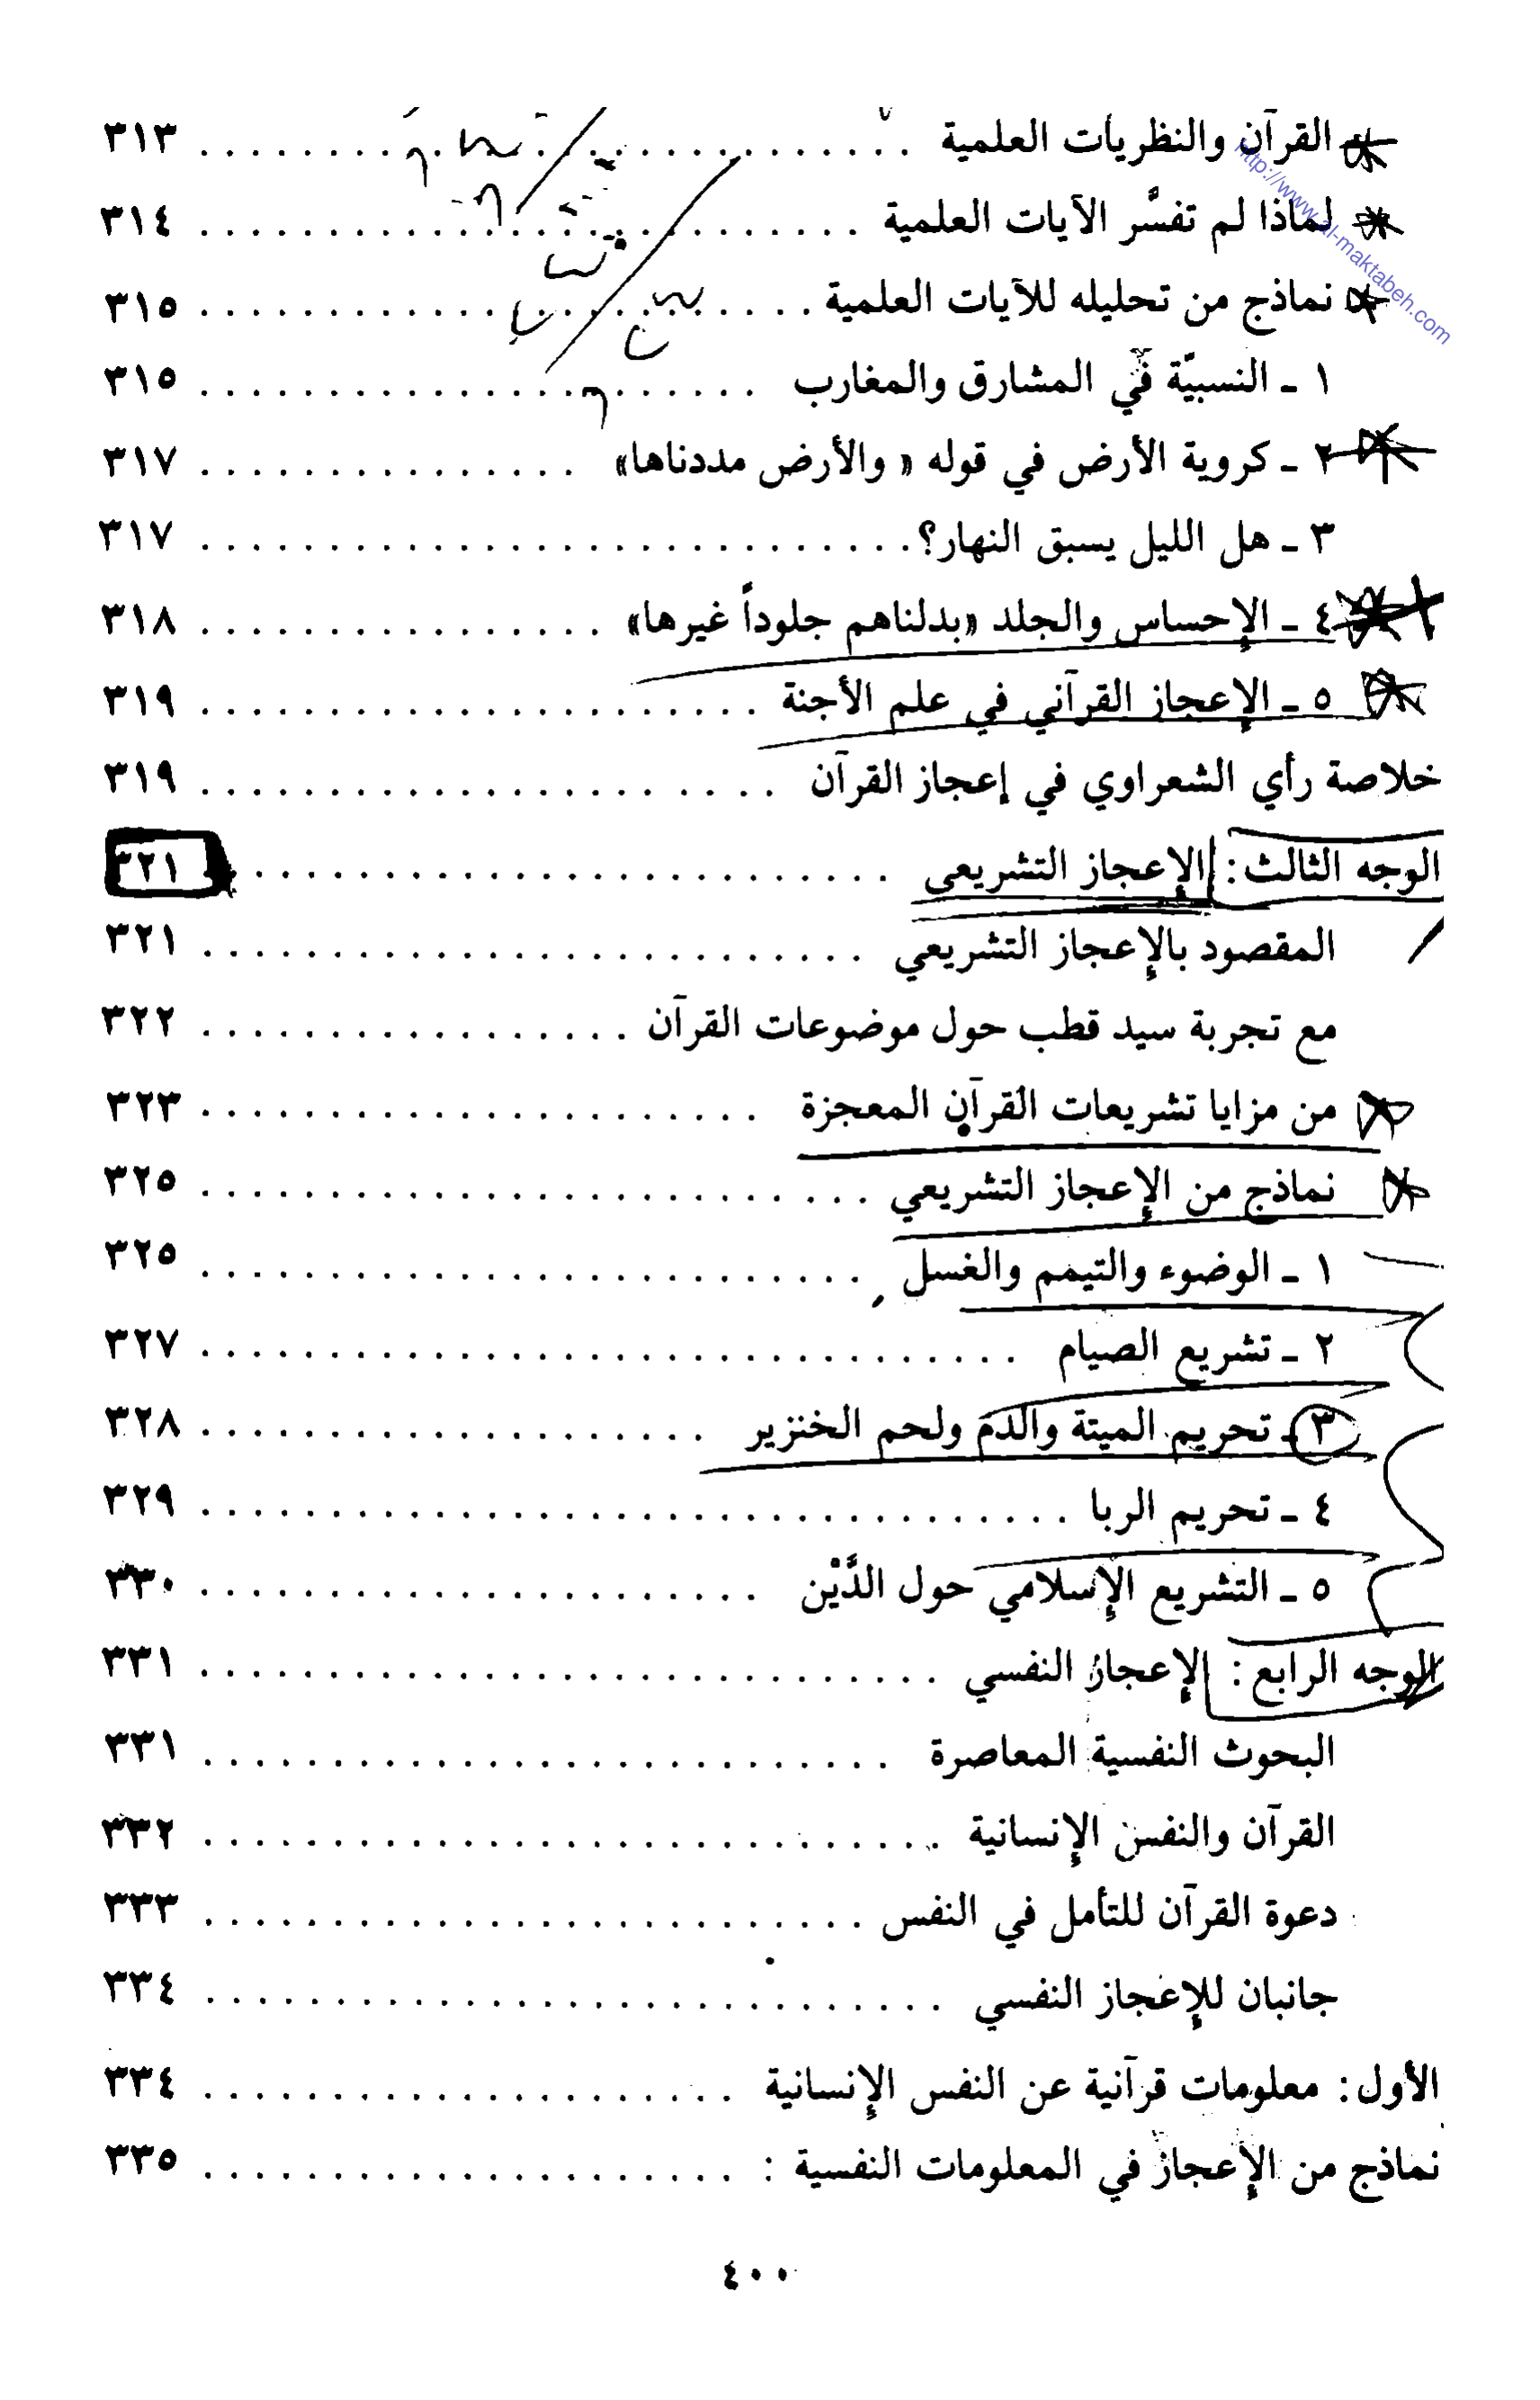 القرآن والنظريات العلمية . . . . . . . . . . ٣١٣
لماذا لم تفسَّر الآيات العلمية . . . . . . . . . . ٣١٤
نماذج من تحليله للآيات العلمية . . . . . . . . . . ٣١٥
١ ـ النسبيّة في المشارق والمغارب . . . . . . . . . . ٣١٥
٢ ـ كروية الأرض في قوله « والأرض مددناها» . . . . . . . . . . ٣١٧
٣ ـ هل الليل يسبق النهار؟ . . . . . . . . . . ٣١٧
٤ ـ الإحساس والجلد «بدلناهم جلوداً غيرها» . . . . . . . . . . ٣١٨
٥ ـ الإعجاز القرآني في علم الأجنة . . . . . . . . . . ٣١٩
خلاصة رأي الشعراوي في إعجاز القرآن . . . . . . . . . . ٣١٩
الوجه الثالث: الإعجاز التشريعي . . . . . . . . . . ٣٢١
المقصود بالإعجاز التشريعي . . . . . . . . . . ٣٢١
مع تجربة سيد قطب حول موضوعات القرآن . . . . . . . . . . ٣٢٢
من مزايا تشريعات القرآن المعجزة . . . . . . . . . . ٣٢٣
نماذج من الإعجاز التشريعي . . . . . . . . . . ٣٢٥
١ ـ الوضوء والتيمم والغسل . . . . . . . . . . ٣٢٥
٢ ـ تشريع الصيام . . . . . . . . . . ٣٢٧
٣ ـ تحريم الميتة والدم ولحم الخنزير . . . . . . . . . . ٣٢٨
٤ ـ تحريم الربا . . . . . . . . . . ٣٢٩
٥ ـ التشريع الإسلامي حول الدَّيْن . . . . . . . . . . ٣٣٠
الوجه الرابع: الإعجاز النفسي . . . . . . . . . . ٣٣١
البحوث النفسية المعاصرة . . . . . . . . . . ٣٣١
القرآن والنفس الإنسانية . . . . . . . . . . ٣٣٢
دعوة القرآن للتأمل في النفس . . . . . . . . . . ٣٣٣
جانبان للإعجاز النفسي . . . . . . . . . . ٣٣٤
الأول: معلومات قرآنية عن النفس الإنسانية . . . . . . . . . . ٣٣٤
نماذج من الإعجاز في المعلومات النفسية : . . . . . . . . . . ٣٣٥
٤٠٠
http://www.al-maktabeh.com